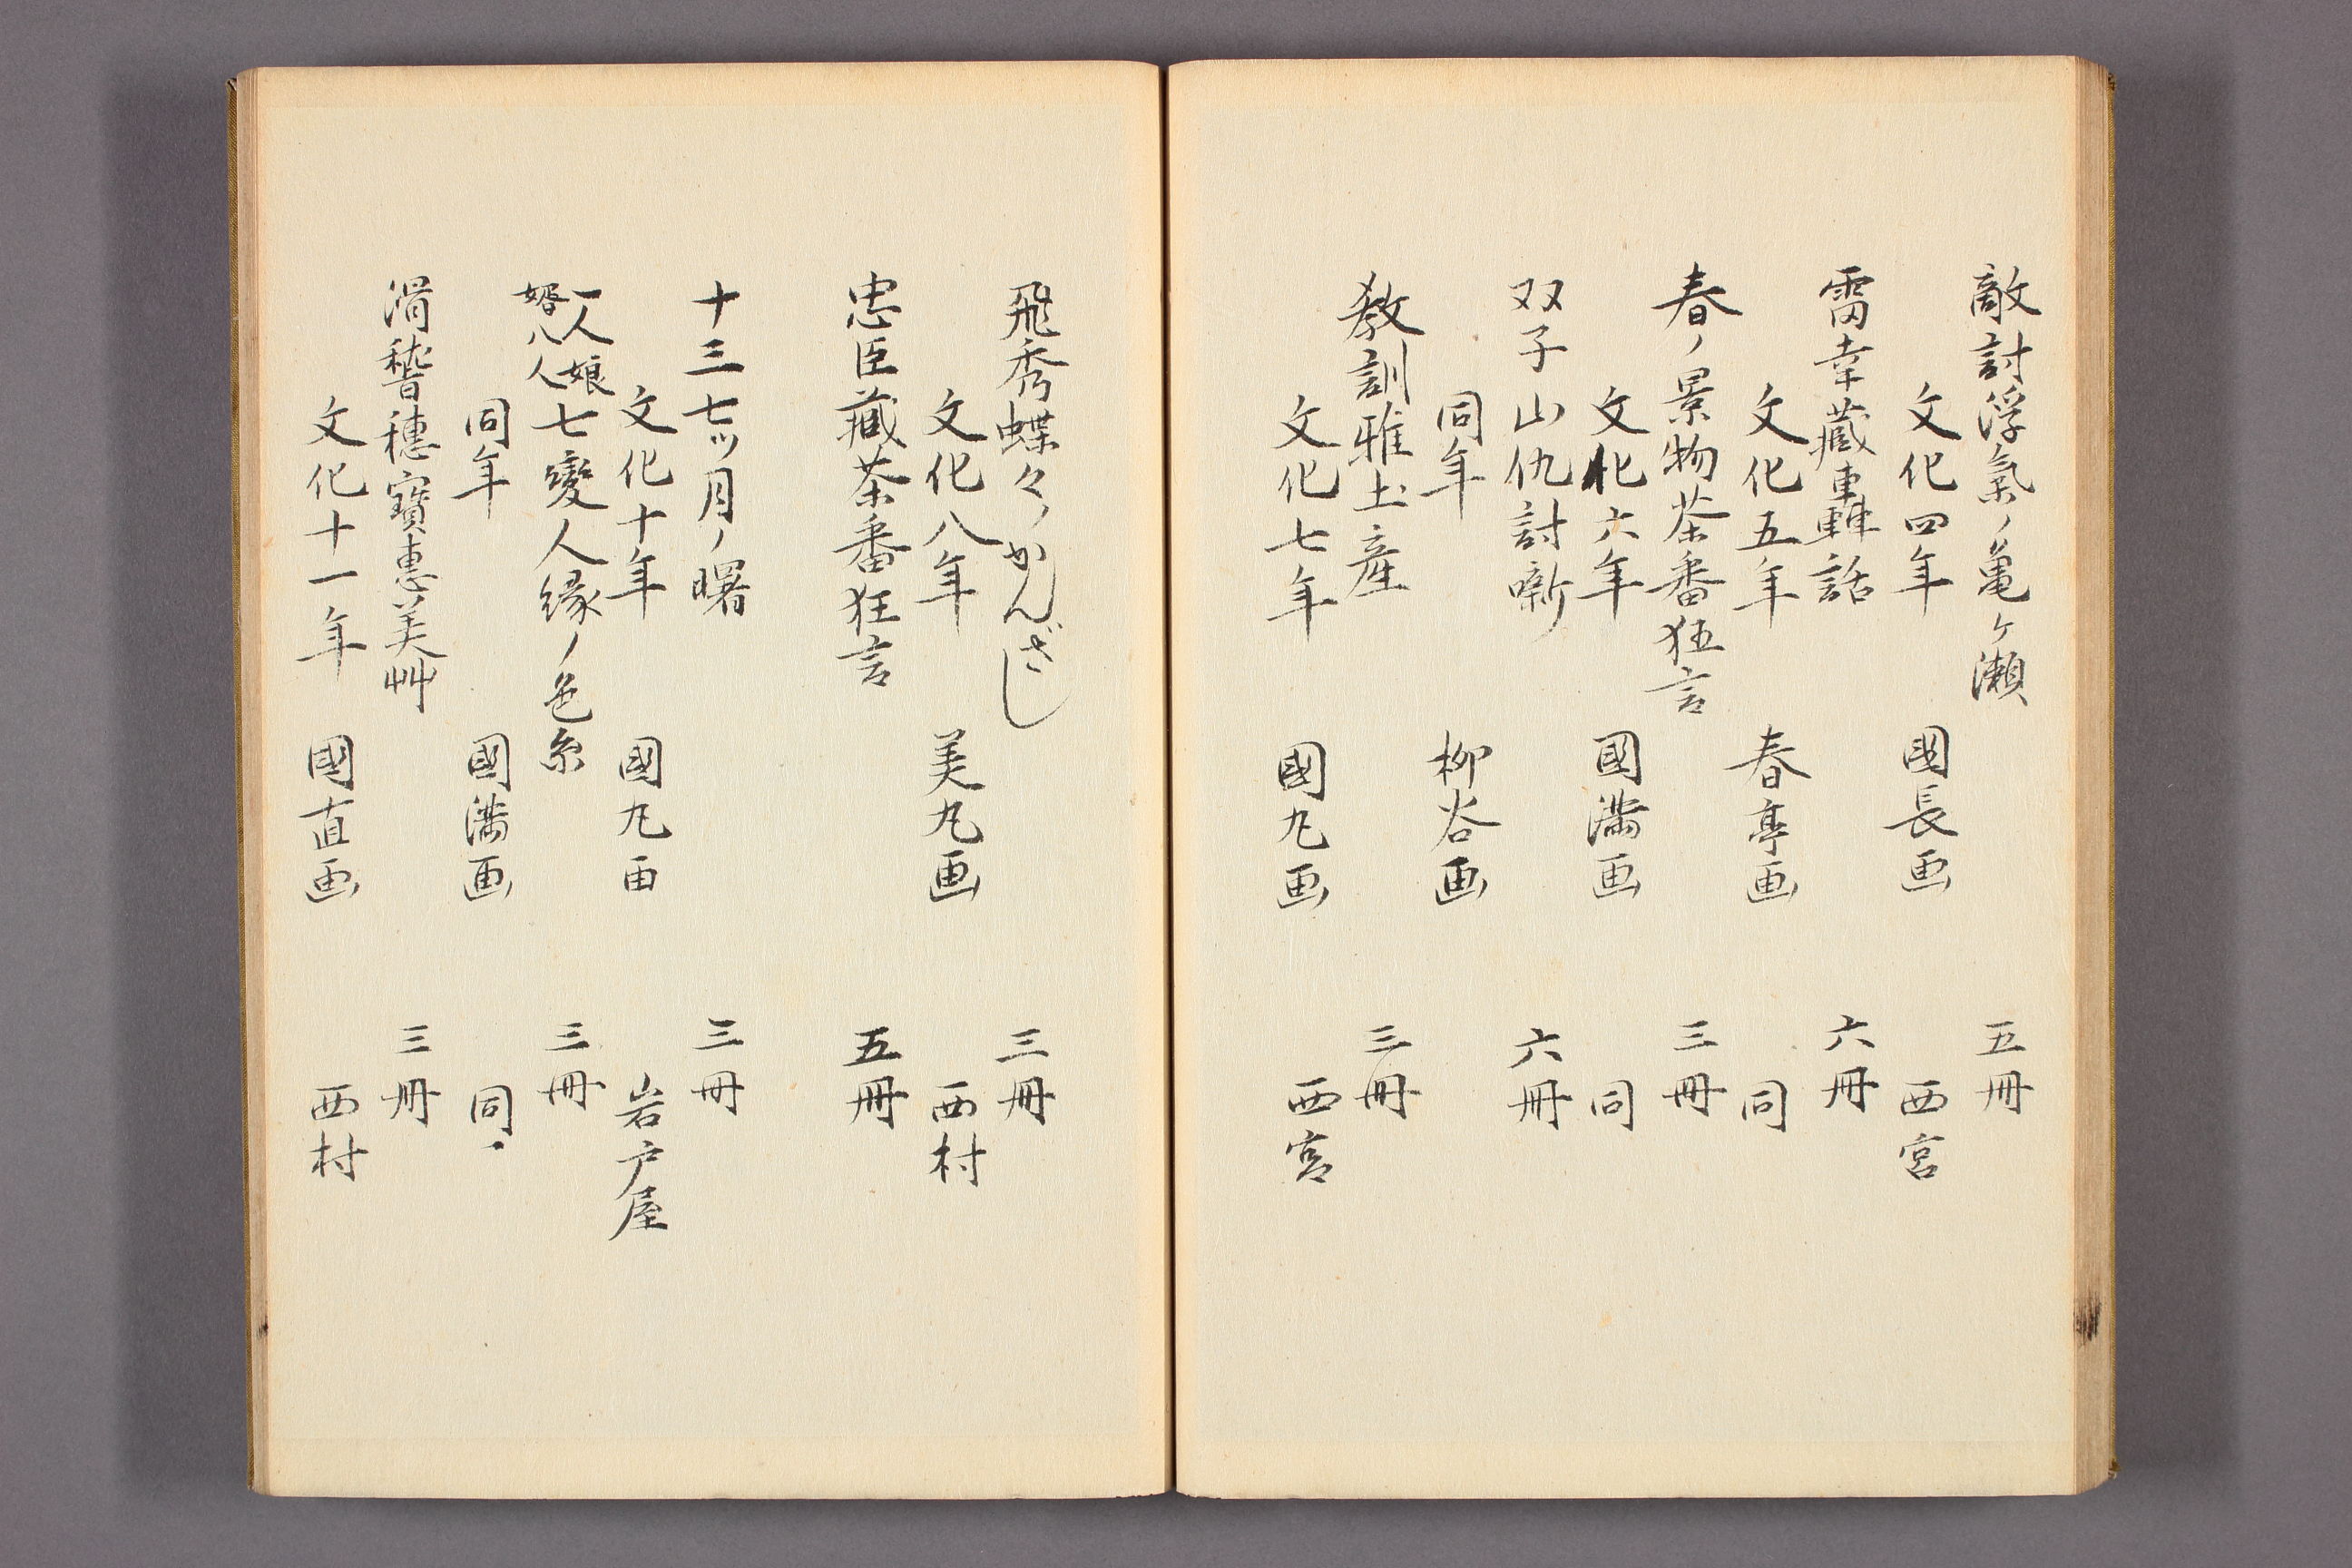 敵討浮氣ノ亀ヶ瀬　五冊
文化四年　國長画　西宮
雷幸藏車轟話　六冊
文化五年　春亭画　同
春ノ景物茶番狂言　三冊
文化六年　國満画　同
双子山仇討噺　六冊
同年　柳谷画
教訓雅土産　三冊
文化七年　國丸画　西宮
飛秀蝶々のかんざし　三冊
文化八年　美丸画　西村
忠臣藏茶番狂言　五冊
十三七ツ月ノ曙　三冊
文化十年　國丸画　岩戸屋
一人娘
婿八人
七變人緣ノ色糸　三冊
同年　國満画　同
滑稽穗寶惠美艸　三冊
文化十一年　國直画　西村